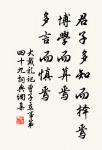 君子多知而擇焉
博學而算焉
多言而慎焉
大戴礼记曾子立事第
四十九詞典調集